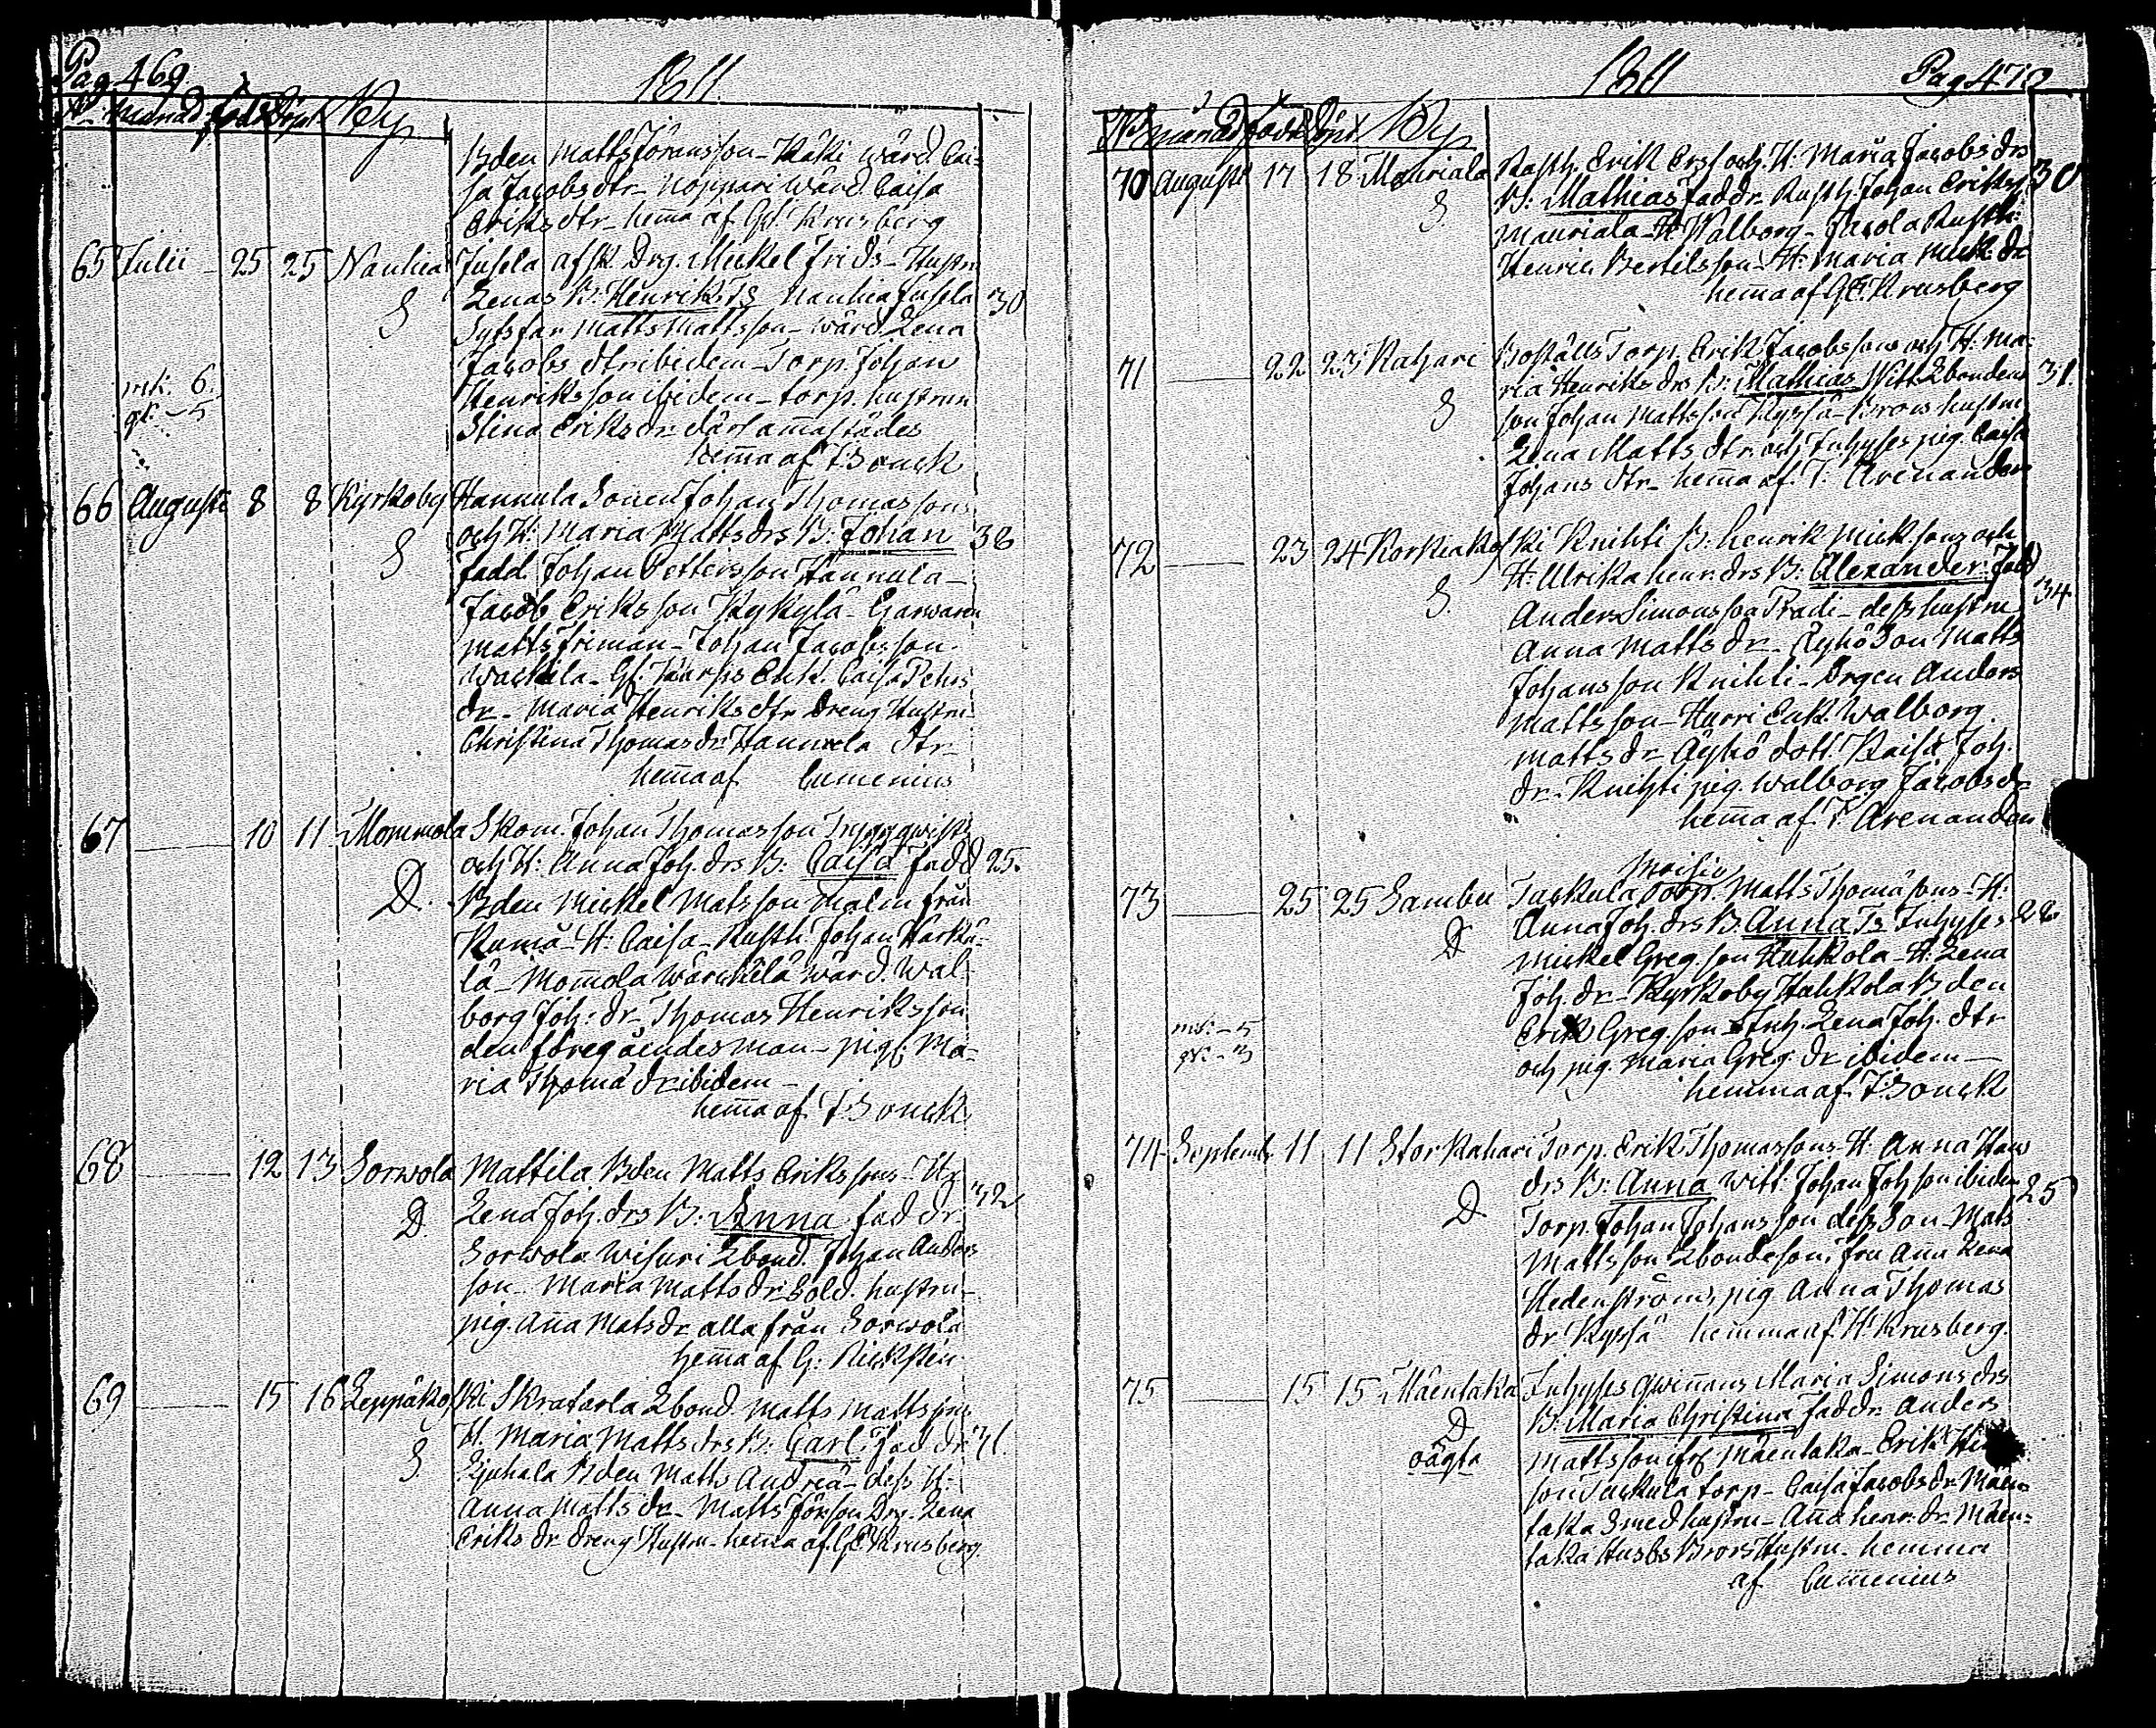 Pag 469. 1811.
No månad född Döpt By
Bden Matts Göransson - Käki wärd. Cai-
sa Jacobs dtr - Noppari wärd. Caisa
Eriks dtr - hema af GE Krusberg
65 Julii - 25 25 Nauhia Jusela afsk. Drg. Mickel Frids - Hustru
S Lenas B: Henrik. Ts Nauhia Jusela 30
Sytsfar Matts Mattsson - wärd. Lena
Jacobs dtr ibidem - Torp. Johan
mk: 6. Henriksson ibidem - torp. hustrun
qk: - 5 Stina Eriks dr därsamastädes
hema af J: Sonck
66 Augusti 8 8 Kyrkoby Hannula Sonen Johan Thomassons
S och H: Maria Matts drs B: Johan 36
Fadd. Johan Pettersson Hannula -
Jacob Eriksson Kykylä - Garwaren
Matts Friman - Johan Jacobsson
Enk. Caisa Petters
dr - Maria Henriks dtr Dreng Hustru -
Christina Thomas dr Hannula dtr -
hema af Cumenius
67 10 11 Mommola Skom. Johan Thomasson
och H: Anna Joh. drs B: Caisa Fadd 25.
D. Bden Mickel Matsson Malm från
Kumå - H: Caisa - Rusth. Johan Härkä-
lä - Momola wärd. Wal-
borg Joh: dr - Thomas Henriksson
den föregåendes man - pig. Ma-
ria Thoma dr ibidem -
hema af J: Sonck
68 12 13 Sorwola Mattila Bden Matts Erikssons - H:
D. Lena Joh. drs B: Anna faddr. 32
Sorwola Wisuri Lbond. Johan Anders
son - Maria Matts dr Sold. hustru -
pig. Aña Mats dr alla från Sorwola
hema af G: Rickstén
69 15 16 Leppäkoski Skrafarla Lbond Matts Mattsson
H. Maria Matts drs B: Carl. Faddr. 31.
S Bden Matts Andreä - dess H:
Anna Matts dr - Matts Jörsson Drg. Lena
Eriks dr dreng Hustru - hema af GE Krusberg.
1811 Pag 470
No månad född Döpt By
70 Augusti 17 18 Mauriala Rusth. Erik Erss. och H: Maria Jacobs drs
S B: Mathias Faddr. Rusth. Johan Eriksson 30
Mauriala - H: Walborg - Jacola Rusth:
Henric Bertilsson - H: Maria Mick: dr
hema af GE. Krusberg
71 22 23 Rahari Boställs Torp. Erik Jacobssons och H: Ma-
ria Henriks drs B: Mathias Witt: Lbondens 31.
S son Johan Mattsson Kyssä - Brors hustru
Lena Matts dtr och Inhyses pig. Caisa
Johans dtr - hema af. T. Arenander
72 23 24 Korkiakoski Knihti B: Henrik Mick.sons och
H: Ulrika Henr. drs B: Alexander. Fadd
S. Anders Simonsson Pradi - dess hustru 34.
Anna Matts dr - Äyhö Son Matts
Johansson Knihti - Drgen Anders
Mattsson - Hurri Enk. Walborg
Matts dr - Äyhö dott. Kaisa Joh.
dr - Knihti pig. Walborg Jacobs dr
hema af T. Arenander
73 25 25 Sambu Tackula Torp. Matts Thomäsons - H:
D Anna Joh. drs B. Anna Ts Inhyses 22
Mickel Greg.son Huhkola - H: Lena
Joh. dr - Kyrkoby Huhkola Bden
mk: - 5 Erik Greg.son - Inh. Lena Joh. dtr
qk: - 3 och pig. Maria Greg. dr ibidem -
hemma af J: Sonck
74 Septemb. 11 11 Stor Rahari Torp. Erik Thomassons - H. Anna Henr
drs B: Anna Witt: Johan Joh.son ibidem 25
D Torp. Johan Johansson dess Son - Mats
Mattsson Lbondeson, fru Aña Lena
Hedenström, pig Anna Thomas
dr Kyssä hemma af H: Krusberg.
75 15 15 Mäentaka Inhyses qwinans Maria Simons drs
D B. Maria Christina Faddr. Anders
oägta Mattsson Mäentaka - Erik
son Tackula torp - Caisa Jacobs dr Mäen-
taka Smed hustru - Aña Henr. dr Mäen-
taka Husbs Brors Hustru - hemma
af Cumenius